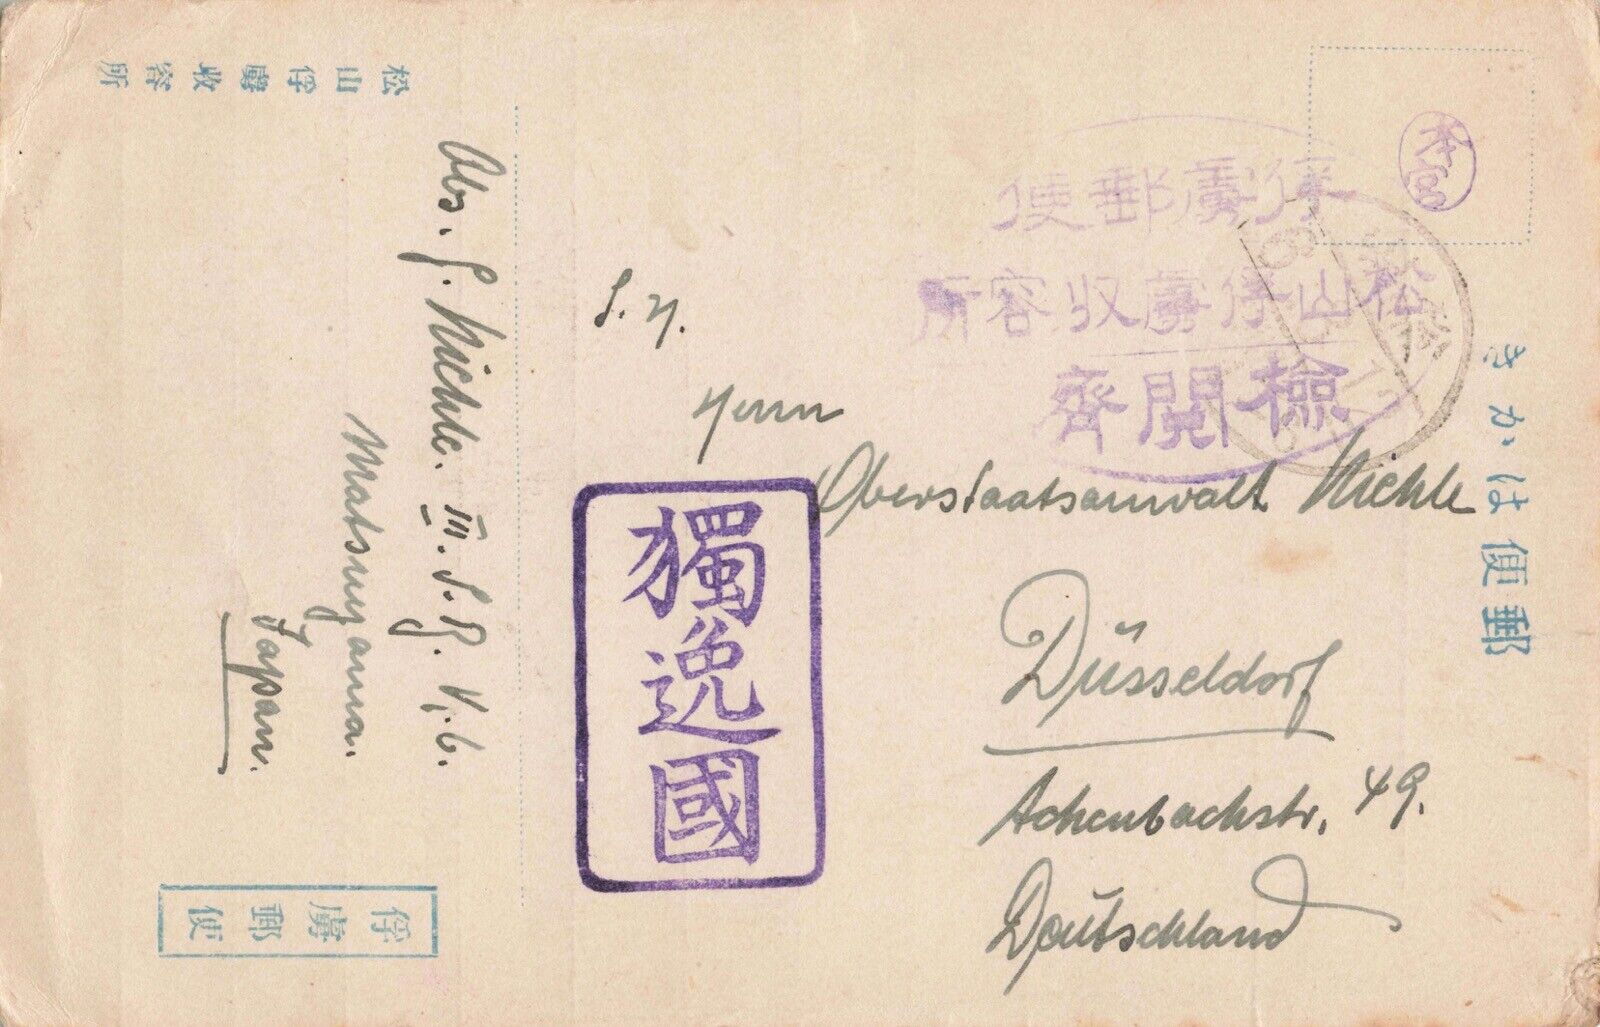 郵便はかき
俘虜郵便
松山俘虜收容所
檢閱濟
S. H.
Herrn
Oberstaatsanwalt
Düsseldorf
Achenbachstr. 49.
Deutschland
獨逸國
松山俘虜收容所
Abs. III. S. B. K. 6.
Matsuyama.
Japan.
俘虜郵便